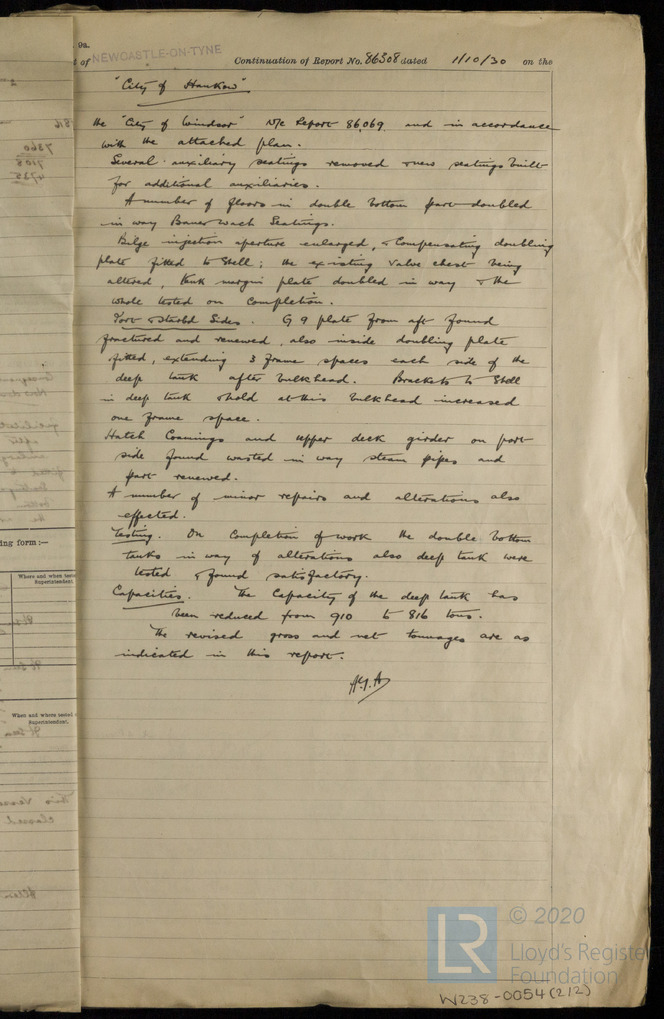 9a.
of NEWCASTLE-ON-TYNE
Continuation of Report No. 86308 dated 1/10/30 on the
"City of Hankow"
the "City of Windsor" N/c Report 86,069 and in accordance
with the attached plan.
Several auxiliary seatings removed & new seatings built
for additional auxiliaries.
A number of floors in double bottom part doubled
in way Bauer Wach Seatings.
Bilge injection aperture enlarged, & Compensating doubling
plate fitted to Shell; the existing valve chest being
altered, tank margin plate doubled in way & the
whole tested on completion.
Port & Starbd Sides. G 9 plate from aft found
fractured and renewed, also inside doubling plate
fitted, extending 3 frame spaces each side of the
deep tank after bulkhead. Brackets to Shell
in deep tank & hold at this bulkhead increased
one frame space.
Hatch Coamings and upper deck girder on port
side found wasted in way steam pipes and
part renewed.
A number of minor repairs and alterations also
effected.
Testing. On Completion of work the double bottom
tanks in way of alterations also deep tank were
tested & found satisfactory.
Capacities. The Capacity of the deep tank has
been reduced from 910 to 816 tons.
The revised gross and net tonnages are as
indicated in this report.
ing form:—
Where and when tested
Superintendent.
When and where tested
Superintendent.
LR
© 2020
Lloyd's Register
Foundation
W238-0054 (2/2)